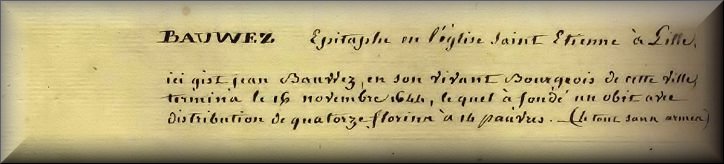 BAUWEZ Epitaphe en l'église Saint Etienne à Lille,
ici gist jean Bauwez, en son vivant Bourgeois de cette ville,
termina le novembre 1644, lequel à fondé un obit avec
distribution de quatorze florins à 14 pauvres. — (le tout sans armes)